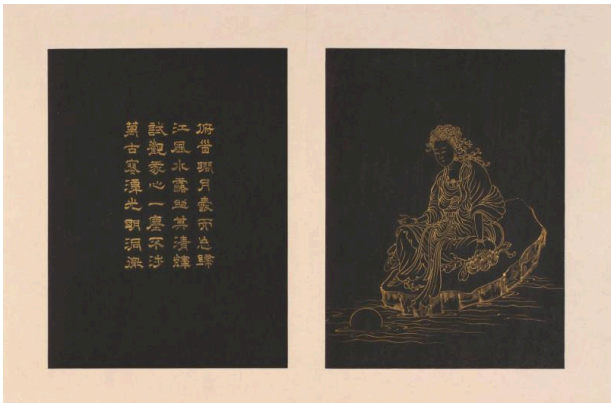 俯月而忘歸
江風水露其清輝
試觀心一塵不涉
萬古寒潭光明洞澈